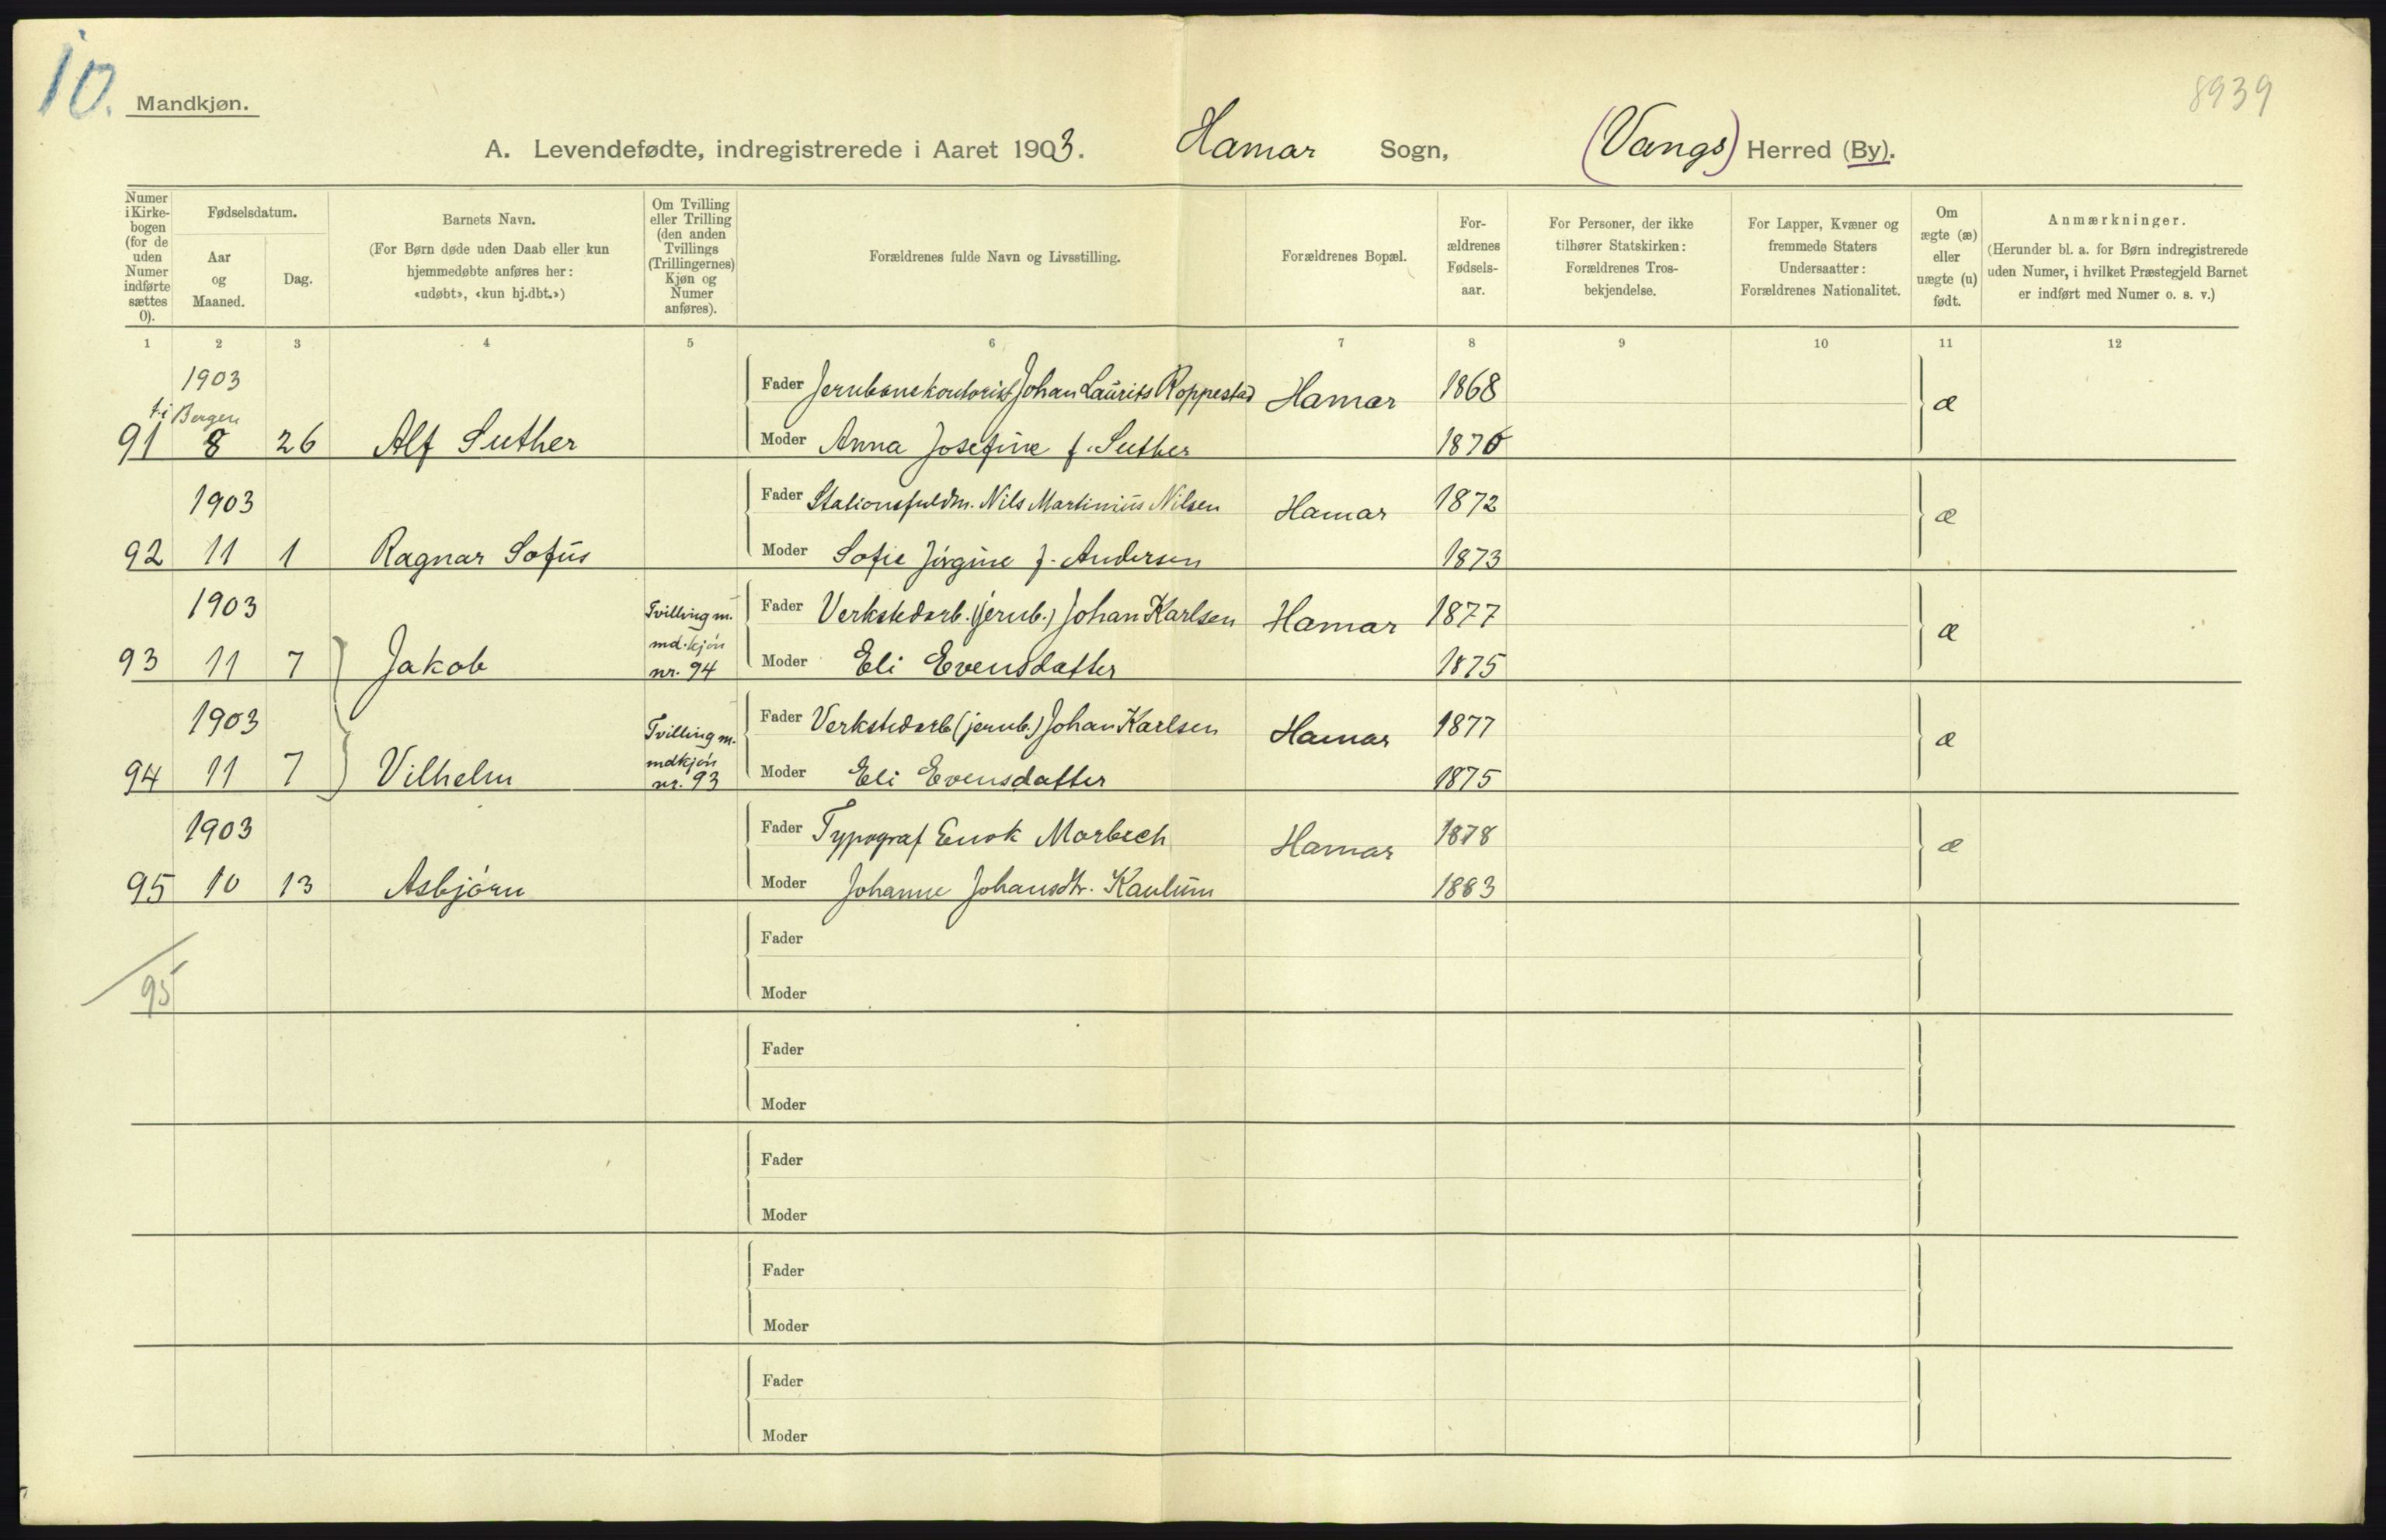 10.
Mandkjøn.
8939
A. Levendefødte, indregistrerede i Aaret 1903. Hamar Sogn, (Vangs) Herred (By).
Numer i Kirke- bogen (for de uden Numer indførte sættes 0).
Fødselsdatum.
Aar og Maaned.
Dag.
Barnets Navn.
(For Børn døde uden Daab eller kun
hjemmedøbte anføres her:
«udøbt», «kun hj.dbt.»)
Om Tvilling eller Trilling (den anden Tvillings (Trillingernes) Kjøn og Numer anføres).
Forældrenes fulde Navn og Livsstilling.
Forældrenes Bopæl.
For- ældrenes Fødsels- aar.
For Personer, der ikke
tilhører Statskirken:
Forældrenes Tros-
bekjendelse.
For Lapper, Kvæner og
fremmede Staters
Undersaatter:
Forældrenes Nationalitet.
Om ægte (æ) eller uægte (u) født.
Anmærkninger.
(Herunder bl. a. for Børn indregistrerede
uden Numer, i hvilket Præstegjeld Barnet
er indført med Numer o. s. v.)
1 2 3 4 5 6 7 8 9 10 11 12
1903 Fader Jernbanekontorist Johan Laurits Roppestad Hamar 1868 æ
f. i Bergen
91 8 26 Alf Suther Moder Anna Josefine f. Suther 1870
1903 Fader Stationsfuldm. Nils Martinius Nilsen Hamar 1872 æ
92 11 1 Ragnar Sofus Moder Sofie Jørgine f. Andersen 1873
1903 Tvilling m. Fader Verkstedarb. (jernb.) Johan Karlsen Hamar 1877 æ
md.kjøn
93 11 7 Jakob nr. 94 Moder Eli Evensdatter 1875
1903 Tvilling m. Fader Verkstedarb (jernb.) Johan Karlsen Hamar 1877 æ
mdkjøn
94 11 7 Vilhelm nr. 93 Moder Eli Evensdatter 1875
1903 Fader Typograf Enok Morbech Hamar 1878 æ
95 10 13 Asbjørn Moder Johanne Johansdtr. Kaulum 1883
Fader
95
Moder
Fader
Moder
Fader
Moder
Fader
Moder
Fader
Moder